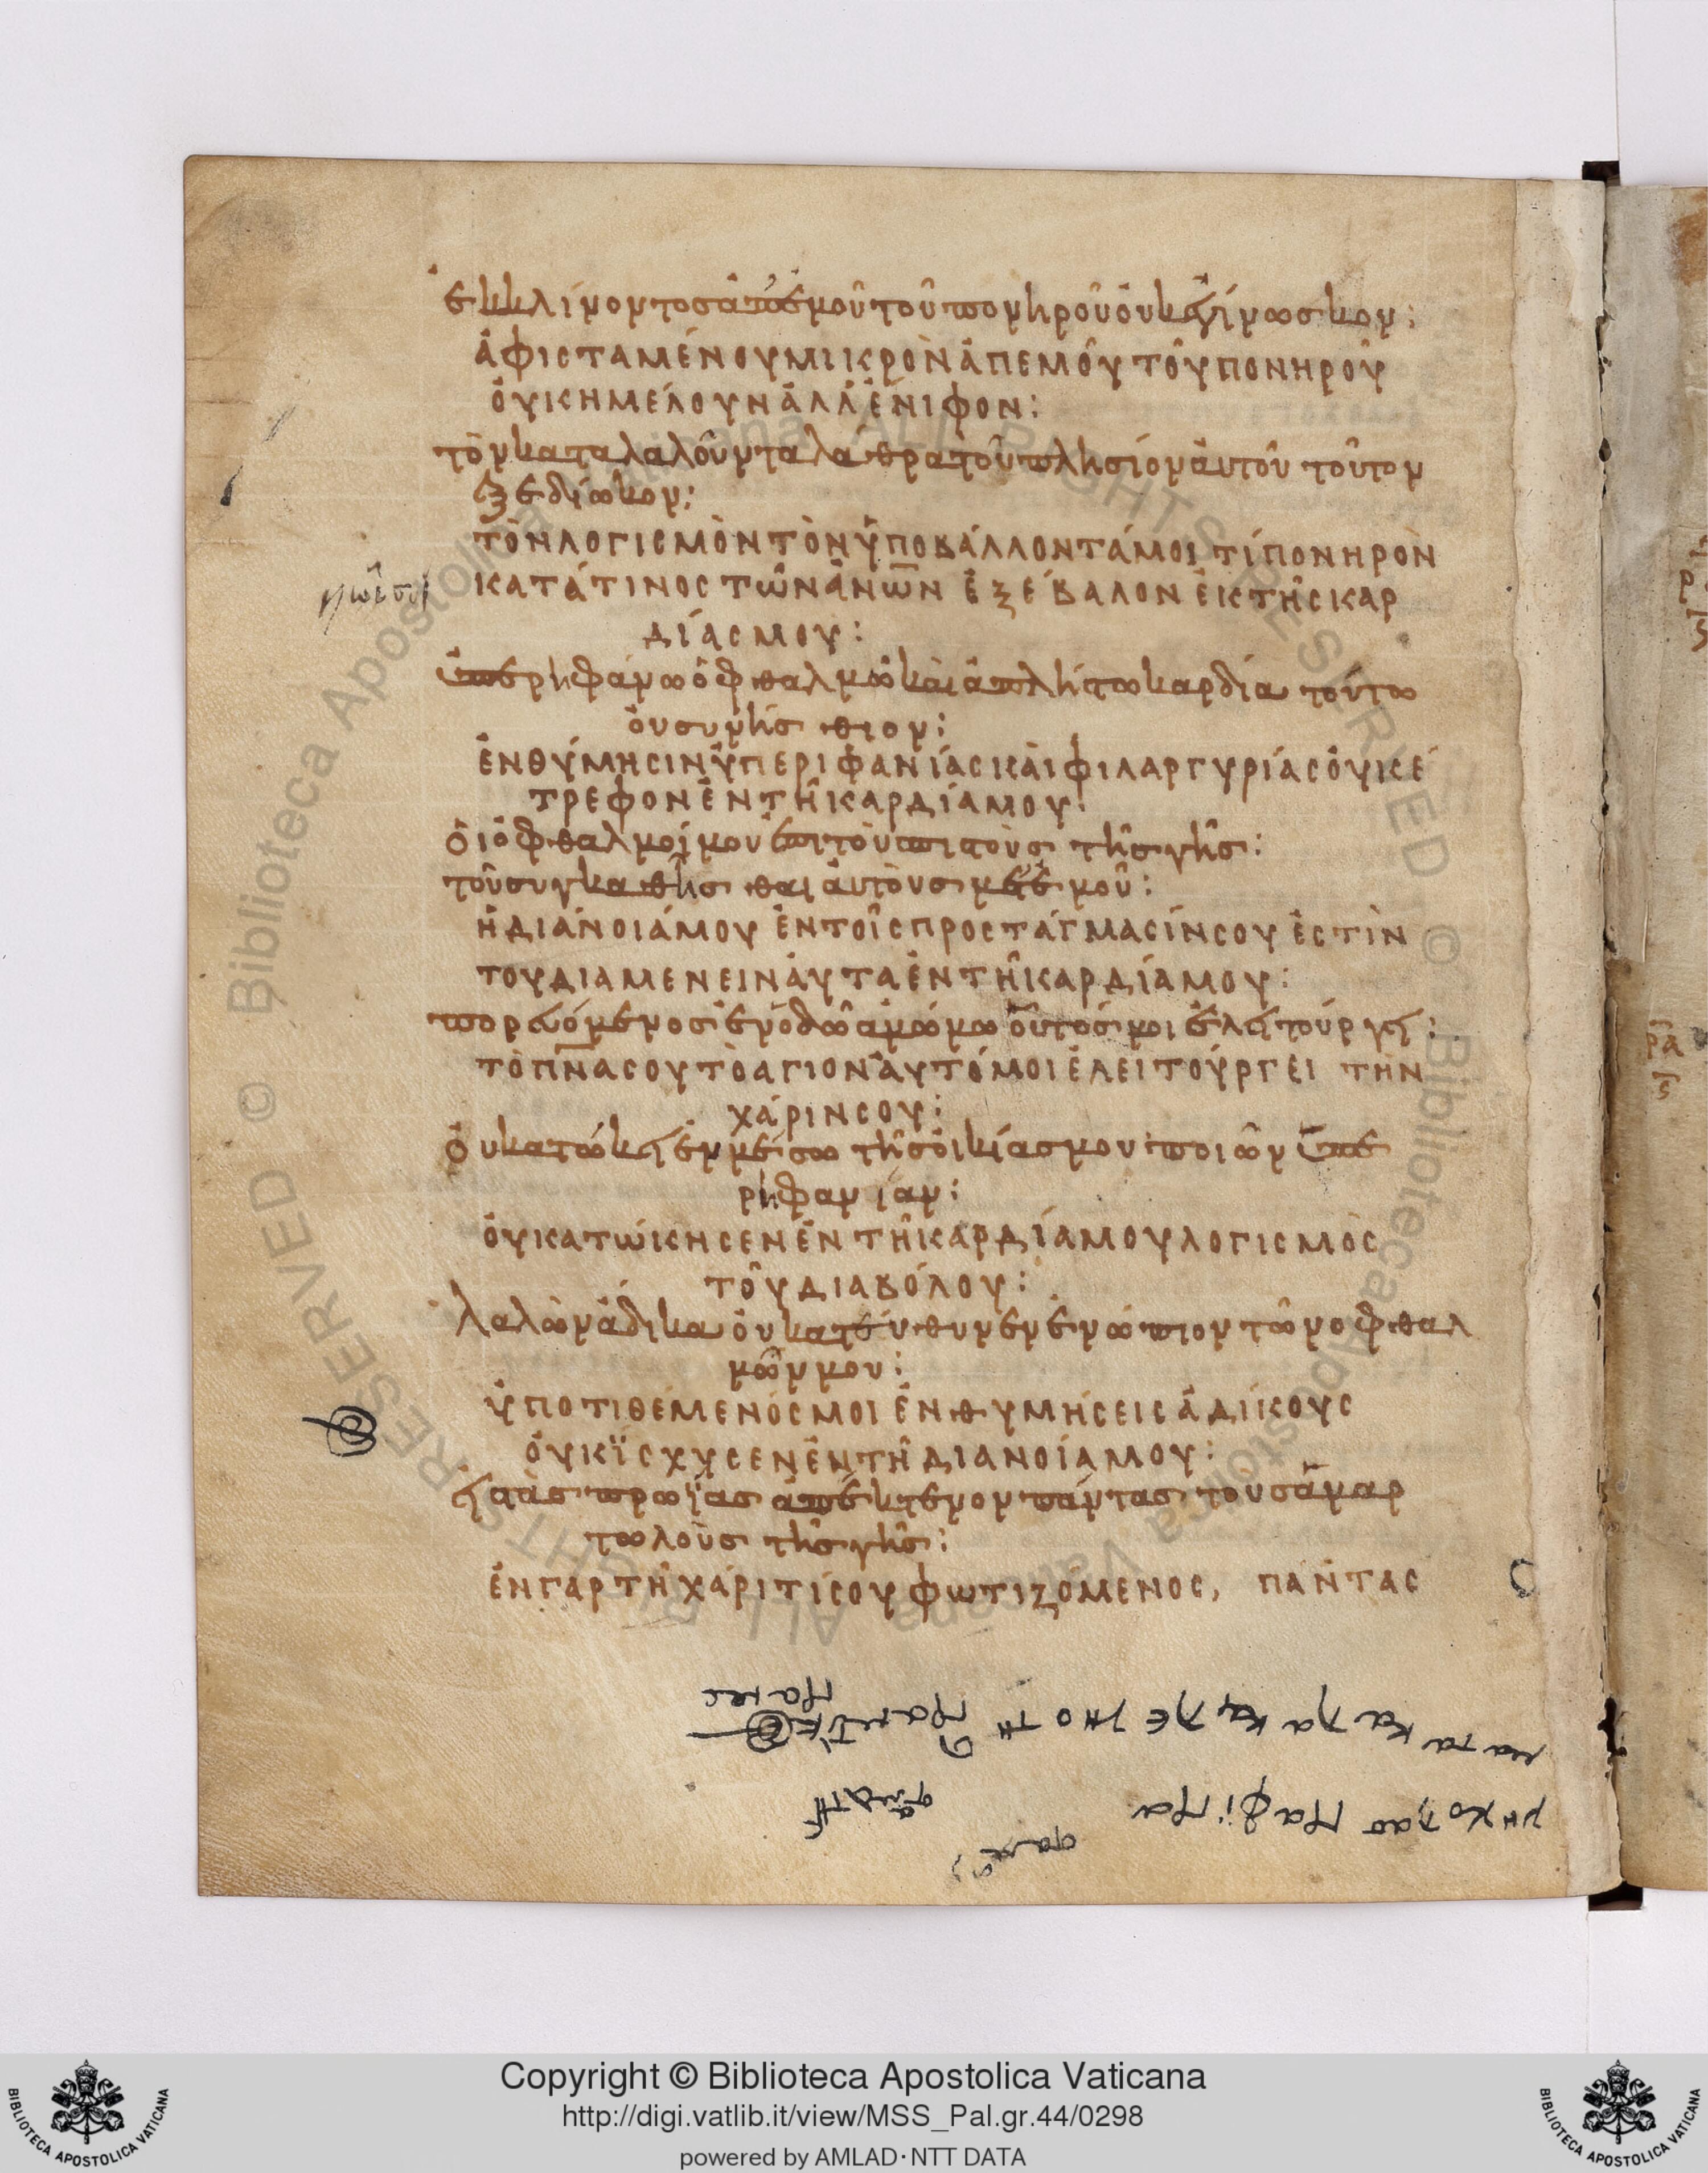 ἐκκλίνοντος ἀπ' ἐμοῦ τοῦ πονηροῦ οὐκ ἐγίνωσκον:
ἀφισταμένου μικρὸν ἀπ' ἐμοῦ τοῦ πονηροῦ
οὐκ ημέλουν ἀλλ' ἔνιφον:
τὸν καταλαλοῦντα λάθρα τοῦ πλησίον αὐτοῦ τοῦτον
ἐξεδίωκον:
τὸν λογισμὸν τὸν ὑποβάλλοντά μοι τί πονηρὸν
κατά τινος τῶν ἀνων ἐξέβαλον ἐκ τῆς καρ
δίας μου:
ὑπερηφάνω ὀφθαλμῶ καὶ ἀπλήστω καρδία τούτω
οὐ συνήσθιον:
ἐνθύμησιν ὑπεριφανίας καὶ φιλαργυρίας οὐκ ἔ
τρεφον ἐν τῆ καρδία μου:
ὁι ὀφθαλμοί μου ἐπὶ τοὺς πιστοὺς τῆς γῆς:
τοῦ συγκαθῆσθαι αὐτοὺς μετ' ἐμοῦ:
ἡ διάνοιά μου ἐν τοῖς προστάγμασίν σου ἐστὶν
του διαμενειν ἀυτα ἐν τῆ καρδία μου:
πορευόμενος ἐν ὁδῶ ἀμώμω οὗτός μοι ἐλειτούργει:
τὸ πνα σου τὸ αγιον ἀυτό μοι ἐλειτούργει τὴν
χάριν σου:
ὀυ κατώκει ἐν μέσω τῆς οἰκίας μου ποιῶν ὑπε
ρηφανίαν:
ὀυ κατώκησεν ἐν τῆ καρδία μου λογισμὸς
τοῦ διαβόλου:
λαλῶν ἄδικα οὐ κατεύθυνεν ἐνώπιον τῶν οφθαλ
μῶν μου:
ὑποτιθέμενός μοι ἐνθυμήσεις ἀδίκους
ὀυκ ἴσχυσεν ἐν τῆ διανοία μου:
εἰς τὰς πρωίας ἀπέκτενον πάντας τοὺς ἁμαρ
τωλοὺς τῆς γῆς:
ἐν γαρ τῆ χάριτί σου φωτιζόμενος, παντας
Copyright © Biblioteca Apostolica Vaticana
http://digi.vatlib.it/view/MSS_Pal.gr.44/0298
powered by AMLAD·NTT DATA
BIBLIOTECA APOSTOLICA VATICANA
BIBLIOTECA APOSTOLICA VATICANA